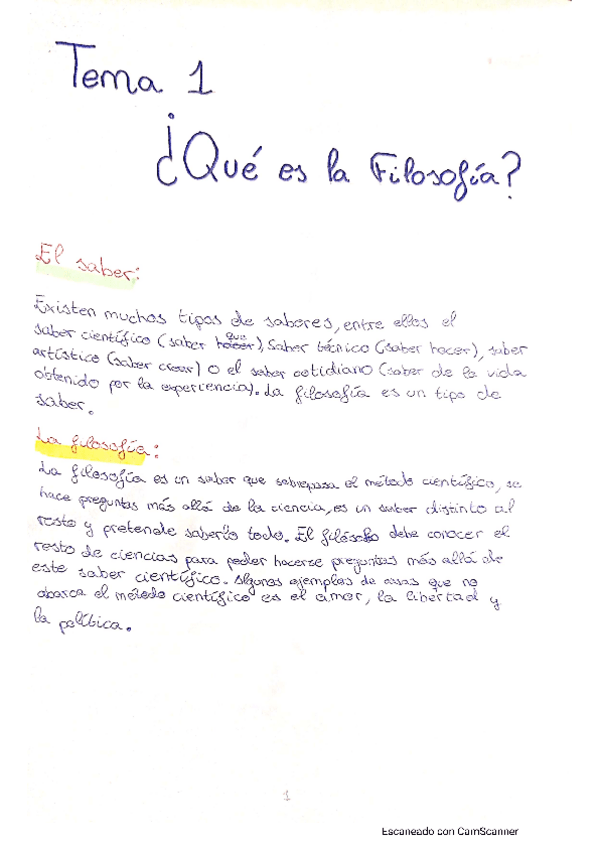 Tema 1
¿Qué es la Filosofía?
El saber:
Existen muchos tipos de saberes, entre ellos el
saber científico (saber que hacer), saber técnico (saber hacer), saber
artístico (saber crear) o el saber cotidiano (saber de la vida
obtenido por la experiencia). La filosofía es un tipo de
saber.
La filosofía:
La filosofía es un saber que sobrepasa el método científico, se
hace preguntas más allá de la ciencia, es un saber distinto al
resto y pretende saberlo todo. El filósofo debe conocer el
resto de ciencias para poder hacerse preguntas más allá de
este saber científico. Algunos ejemplos de cosas que no
abarca el método científico es el amor, la libertad y
la política.
1
Escaneado con CamScanner